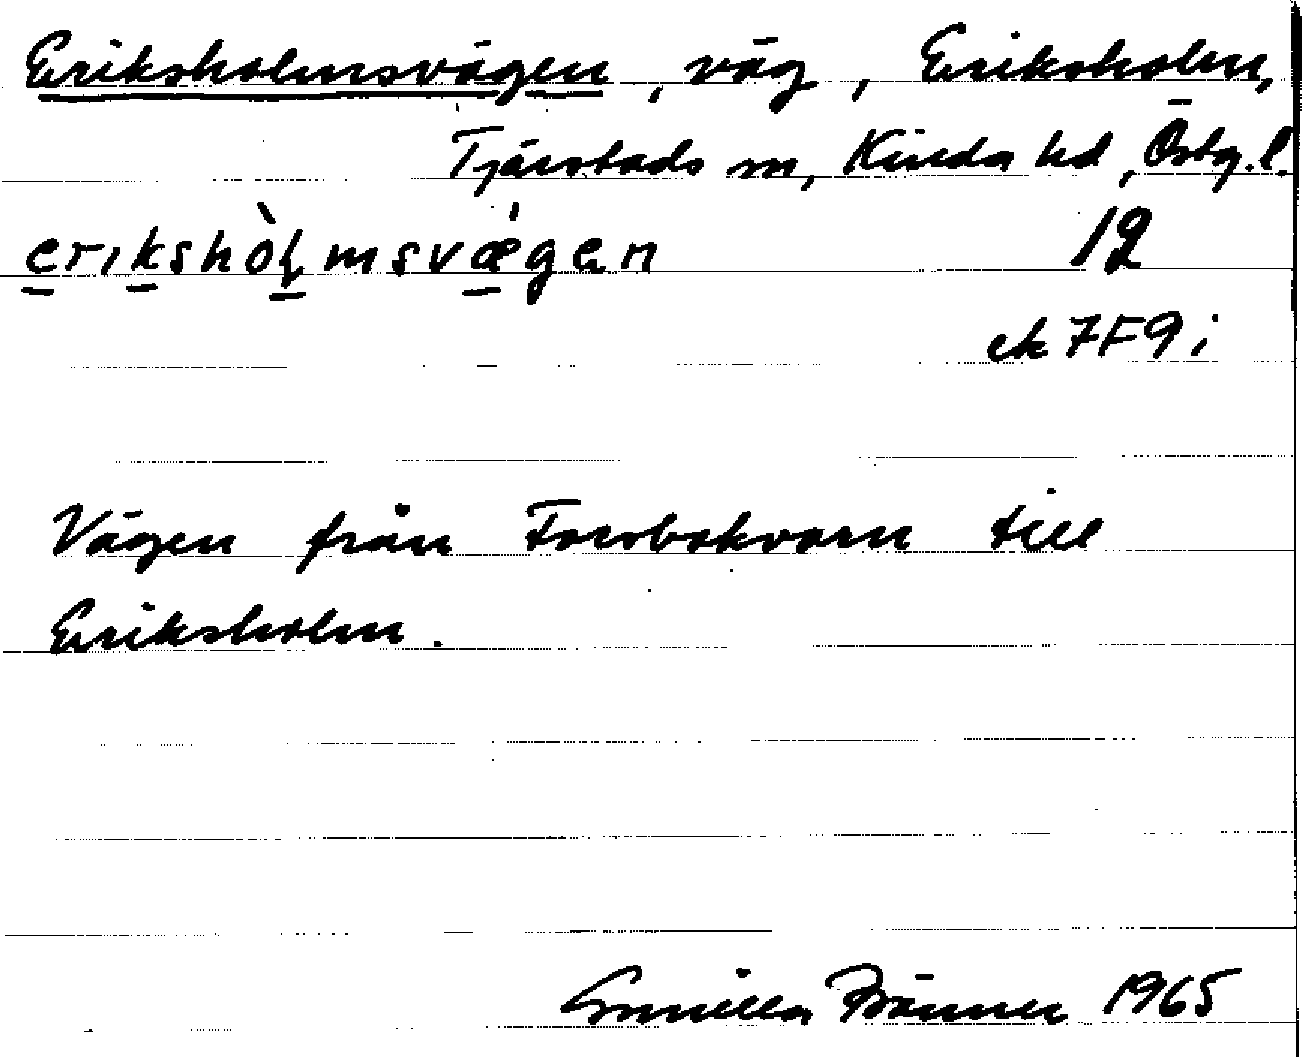 Eriksholmsvägen, väg, Eriksholm,
Tjärstads sn, Kinda hd, Östg.l.
erikshòlmsvǽgen 12
ek 7F9i
Vägen från Forsbokvarn till
Eriksholm.
Gunilla Bänner 1965